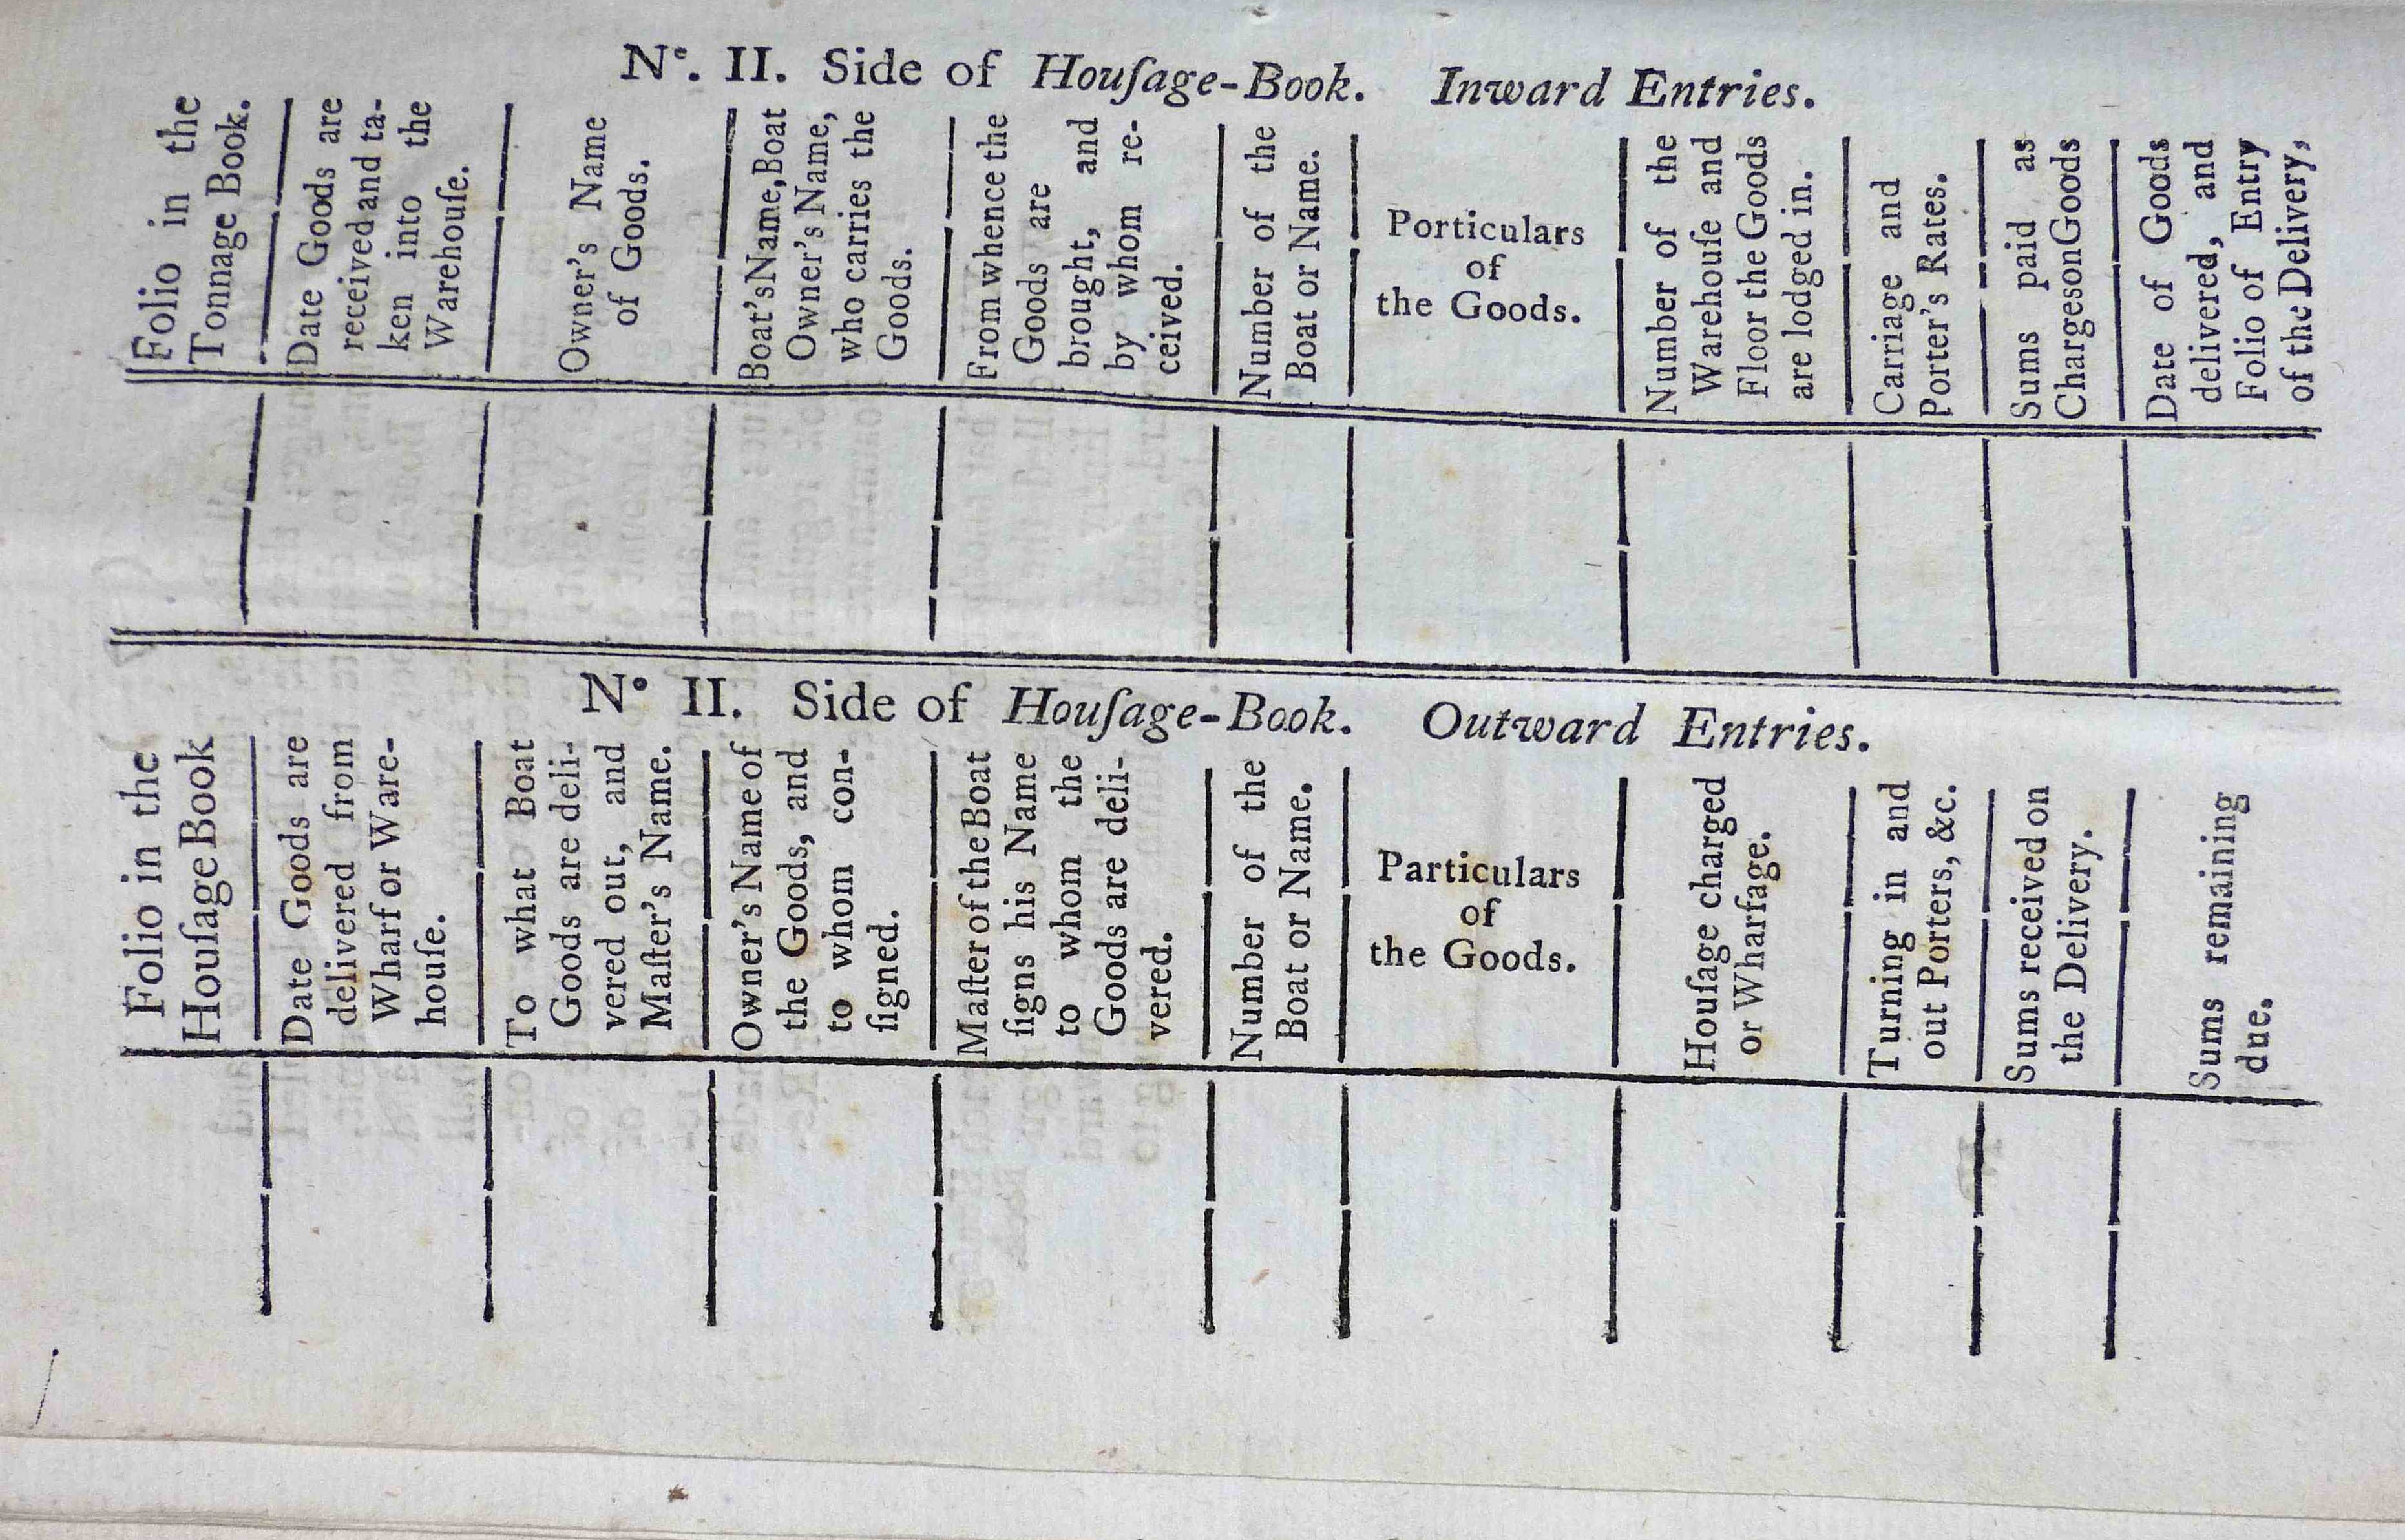 Nº. II. Side of Houſage-Book. Inward Entries.
Folio in the
Tonnage Book.
Date Goods are
received and ta-
ken into the
Warehouſe.
Owner's Name
of Goods.
Boat's Name, Boat
Owner's Name,
who carries the
Goods.
From whence the
Goods are
brought, and
by whom re-
ceived.
Number of the
Boat or Name.
Porticulars
of
the Goods.
Number of the
Warehouſe and
Floor the Goods
are lodged in.
Carriage and
Porter's Rates.
Sums paid as
Charges on Goods
Date of Goods
delivered, and
Folio of Entry
of the Delivery,
Nº II. Side of Houſage-Book. Outward Entries.
Folio in the
Houſage Book
Date Goods are
delivered from
Wharf or Ware-
houſe.
To what Boat
Goods are deli-
vered out, and
Maſter's Name.
Owner's Name of
the Goods, and
to whom con-
ſigned.
Maſter of the Boat
ſigns his Name
to whom the
Goods are deli-
vered.
Number of the
Boat or Name.
Particulars
of
the Goods.
Houſage charged
or Wharfage.
Turning in and
out Porters, &c.
Sums received on
the Delivery.
Sums remaining
due.